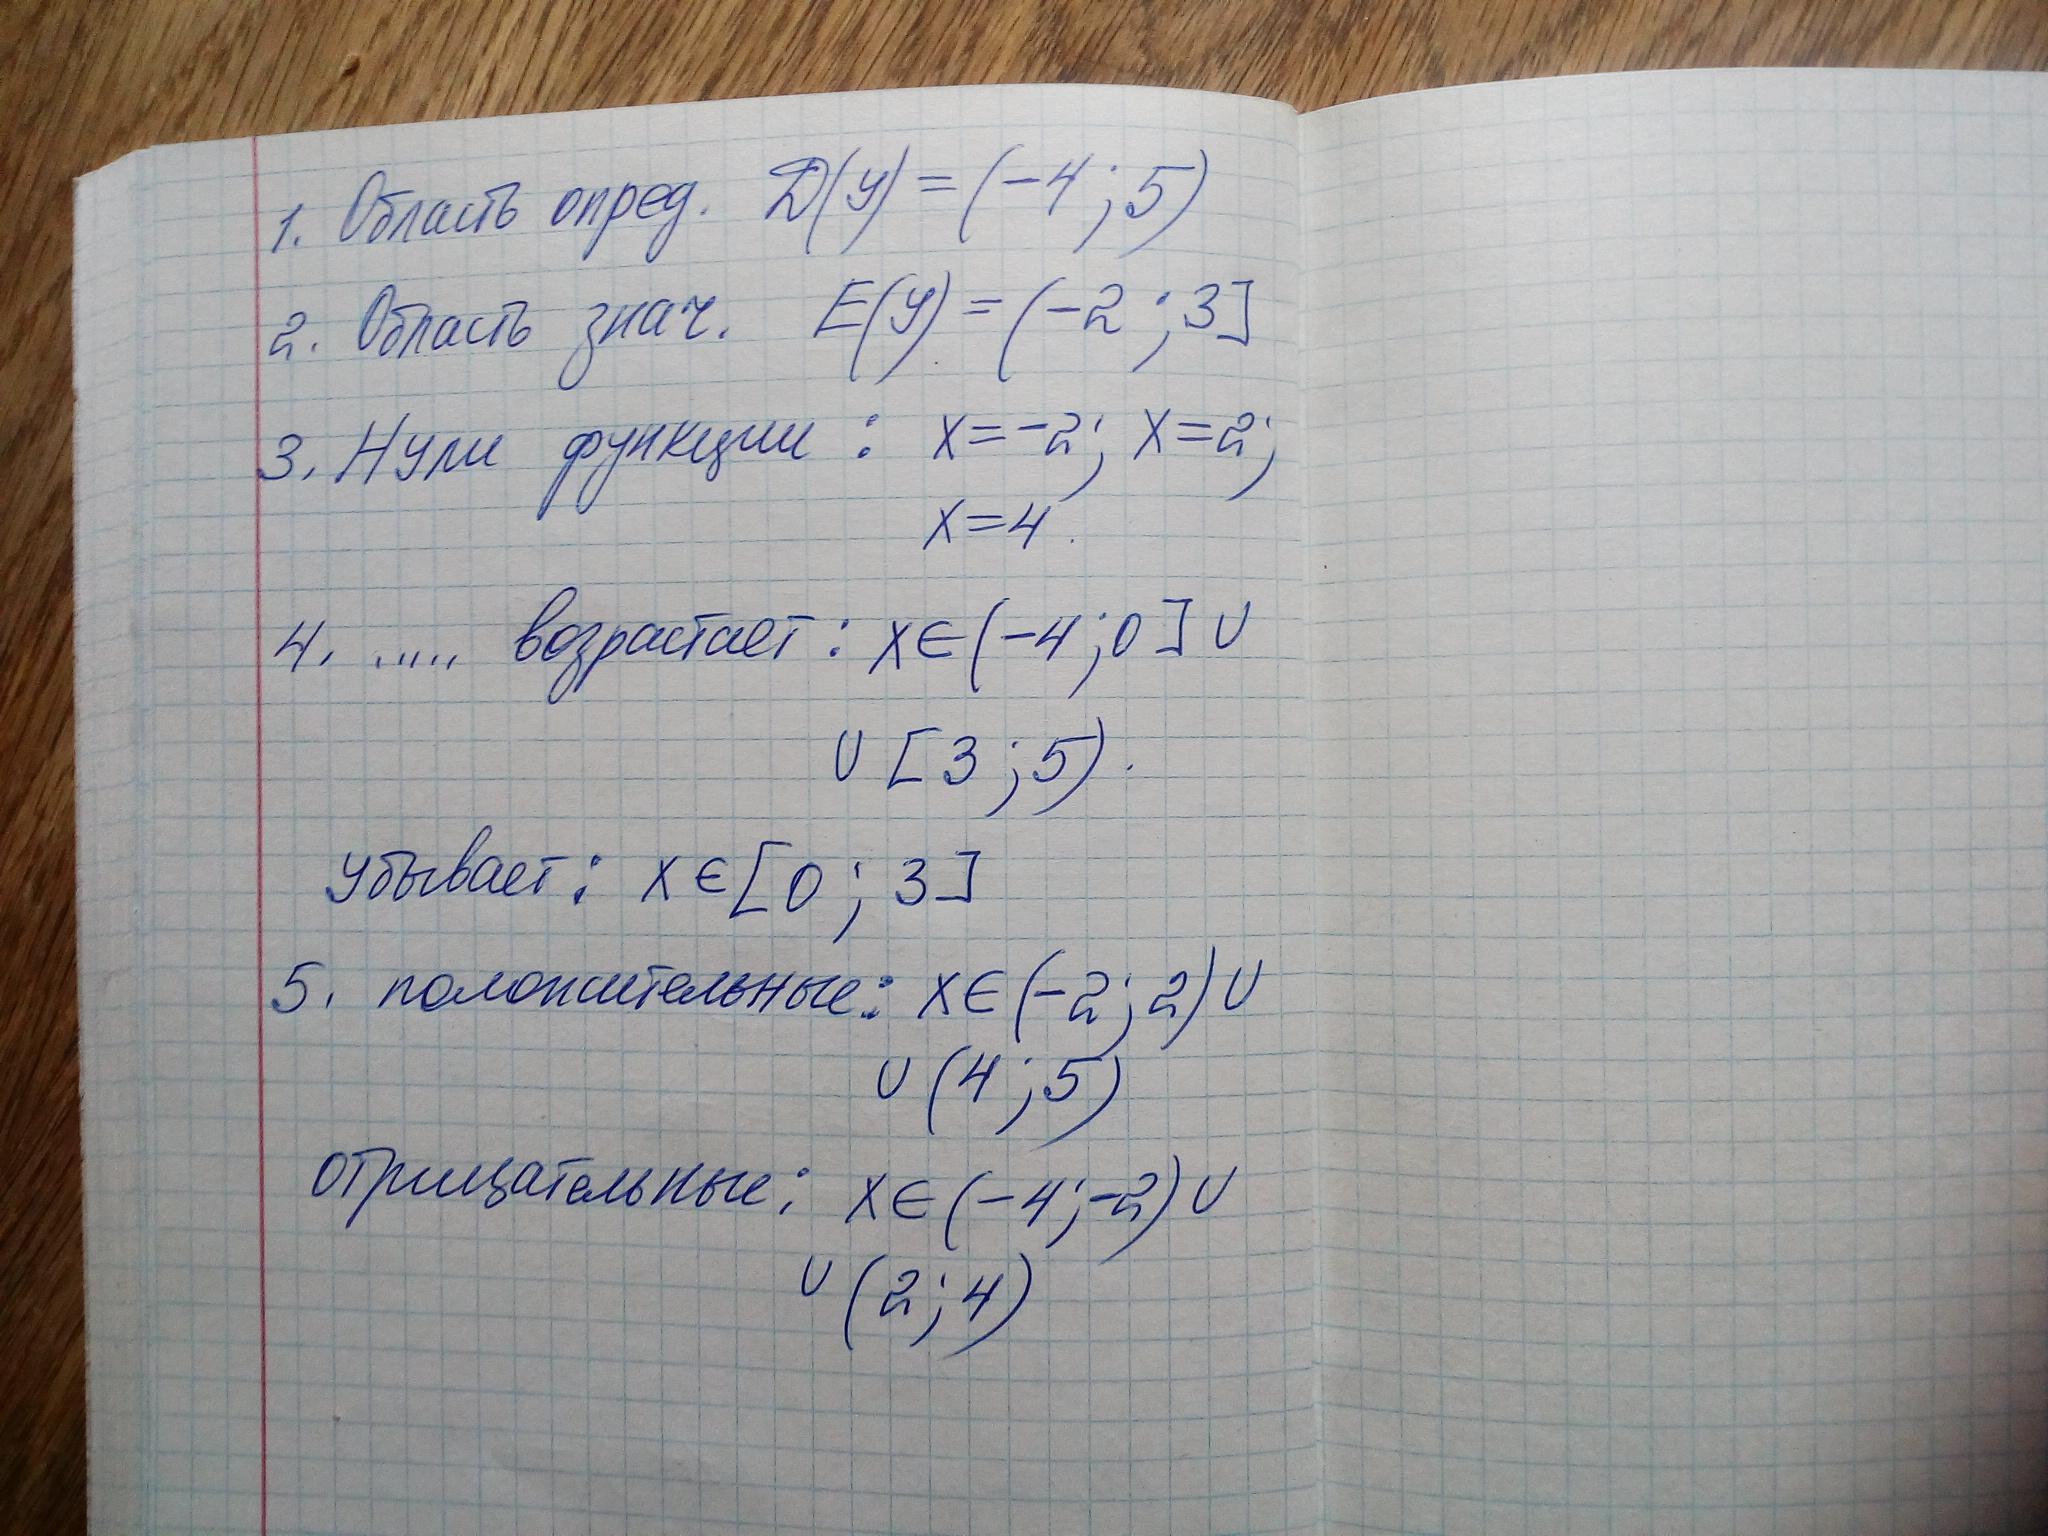 1. Область опред. D(y) = (-4; 5)
2. Область знач. E(y) = (-2; 3]
3. Нули функции: x=-2; x=2;
x=4.
4. ..... возрастает: x∈(-4; 0] ∪
∪ [3; 5).
убывает: x∈[0; 3]
5. положительные: x∈(-2; 2) ∪
∪ (4; 5)
отрицательные: x∈(-4; -2) ∪
∪ (2; 4)